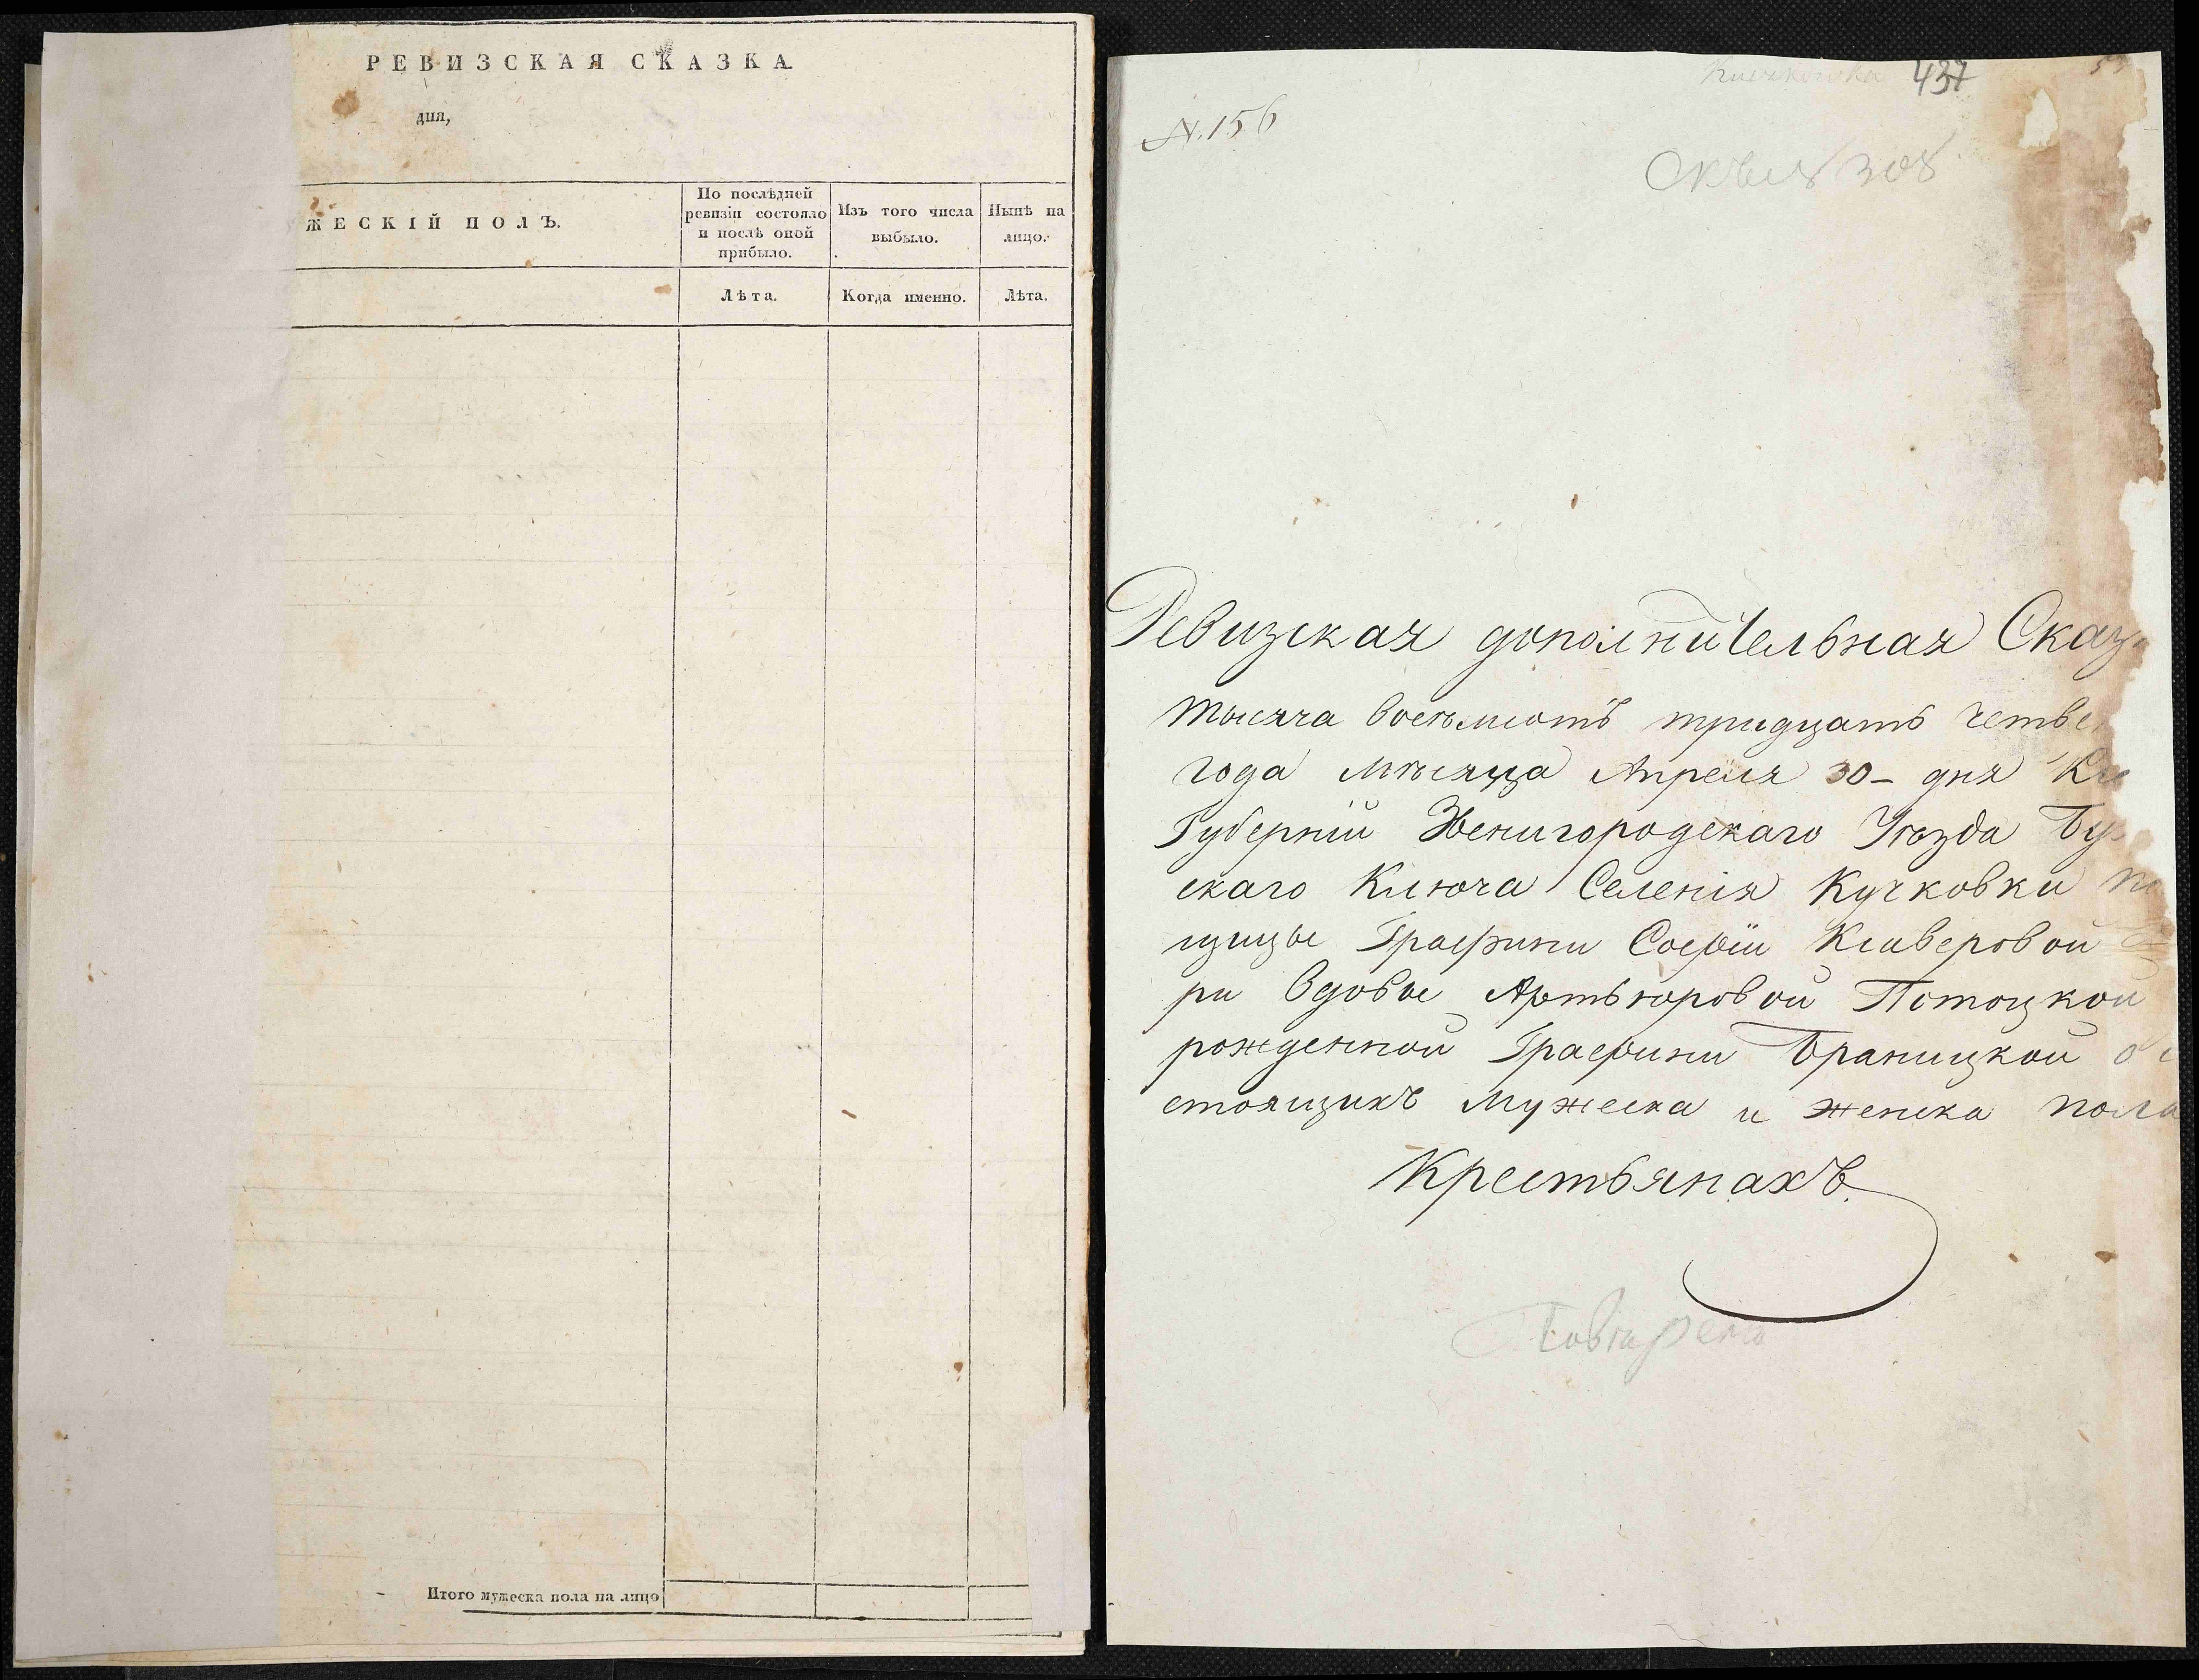 РЕВИЗСКАЯ СКАЗКА.
дня,
ЖЕСКІЙ ПОЛЪ.
По послѣдней
ревизіи состояло
и послѣ оной
прибыло.
Изъ того числа
выбыло.
Нынѣ на
лицо.
Лѣта.
Когда именно.
Лѣта.
Итого мужеска пола на лицо
437
N. 156
Ревизская дополнительная Сказ
тысяча восемьсотъ тридцать четве
года мѣсяца Апреля 30- дня Кіе
Губерніи Звенигородскаго Уѣзда Бу
скаго Ключа Селенія Кучковки по
щицы Графини Софіи Ксаверовой
ри Вдовы Артьюровой Потоцкой
рожденной Графини Браницкой о
стоящихъ мужеска и женска пола
Крестьянахъ.